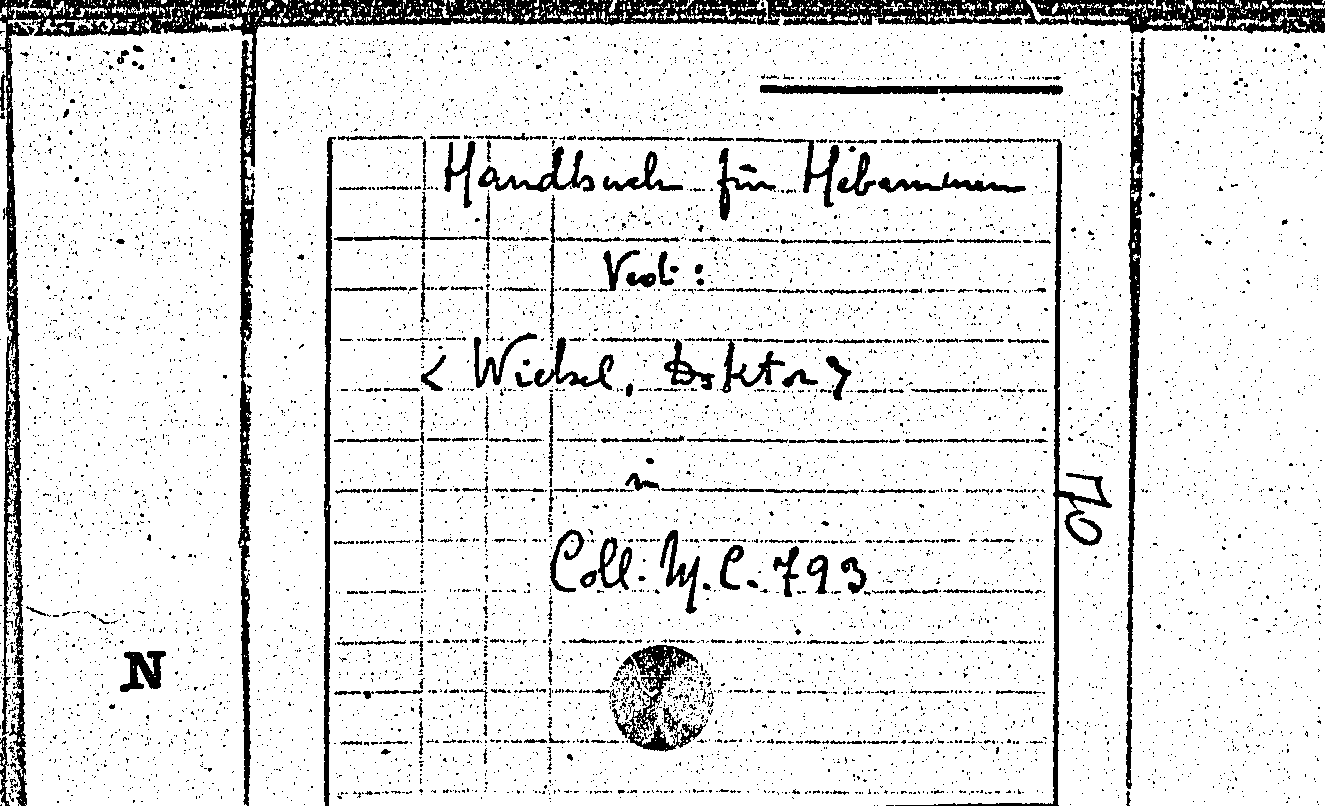 Handbuch für Hebammen
Verf. :
< Wickel, Doktor >
in
Coll. M. C. 793
170
N